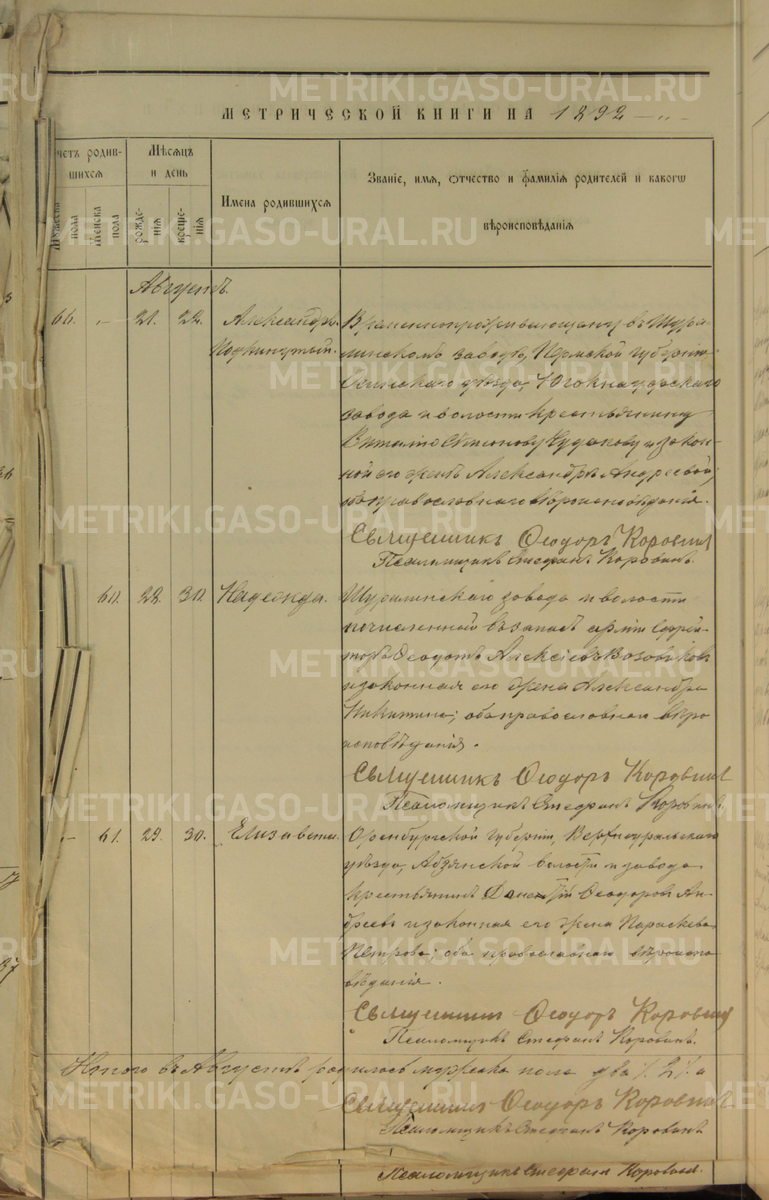 METRIKI.GASO-URAL.RU
МЕТРИЧЕСКОЙ КНИГИ НА 1892
Счетъ родив-
шихся
Мужеска
пола
Женска
пола
Мѣсяцъ
и день
рожде-
нія
креще-
нія
Имена родившихся
Званіе, имя, отчество и фамилія родителей и какогѡ
вѣроисповѣданія
Августъ.
66. - 21. 22. Александръ. Временнопроживающему въ Шура-
Подкинутый. линскомъ заводѣ, Пермской Губерніи
Осинскаго уѣзда, Югокнауфскаго
завода и волости крестьянину
Виталію и закон-
ной его женѣ Александрѣ Андреевой;
православнаго вѣроисповѣданія.
Священникъ Ѳеодоръ Коровинъ
Псаломщикъ Стефанъ Коровинъ.
60. 22. 30. Надежда. Шуралинскаго завода и волости
зачисленный въ запасъ арміи Ефрей-
торъ Ѳеодотъ Алексіевъ Возовиковъ
и законная его жена Александра
Никитина; оба православнаго вѣро
исповѣданія.
Священникъ Ѳеодоръ Коровинъ
Псаломщикъ Стефанъ Коровинъ.
- 61. 29. 30. Елизавета. Оренбургской Губерніи, Верхнеуральскаго
уѣзда, Авзянской волости и завода
крестьянинъ Ѳеодоровъ Ан-
дреевъ и законная его жена Параскева
Петрова; оба православнаго вѣроиспо
вѣданія.
Священникъ Ѳеодоръ Коровинъ
Псаломщикъ Стефанъ Коровинъ.
Итого въ Августѣ родилось мужеска пола два /. 2 /. а
Священникъ Ѳеодоръ Коровинъ
Псаломщикъ Стефанъ Коровинъ
Псаломщикъ Стефанъ Коровинъ.